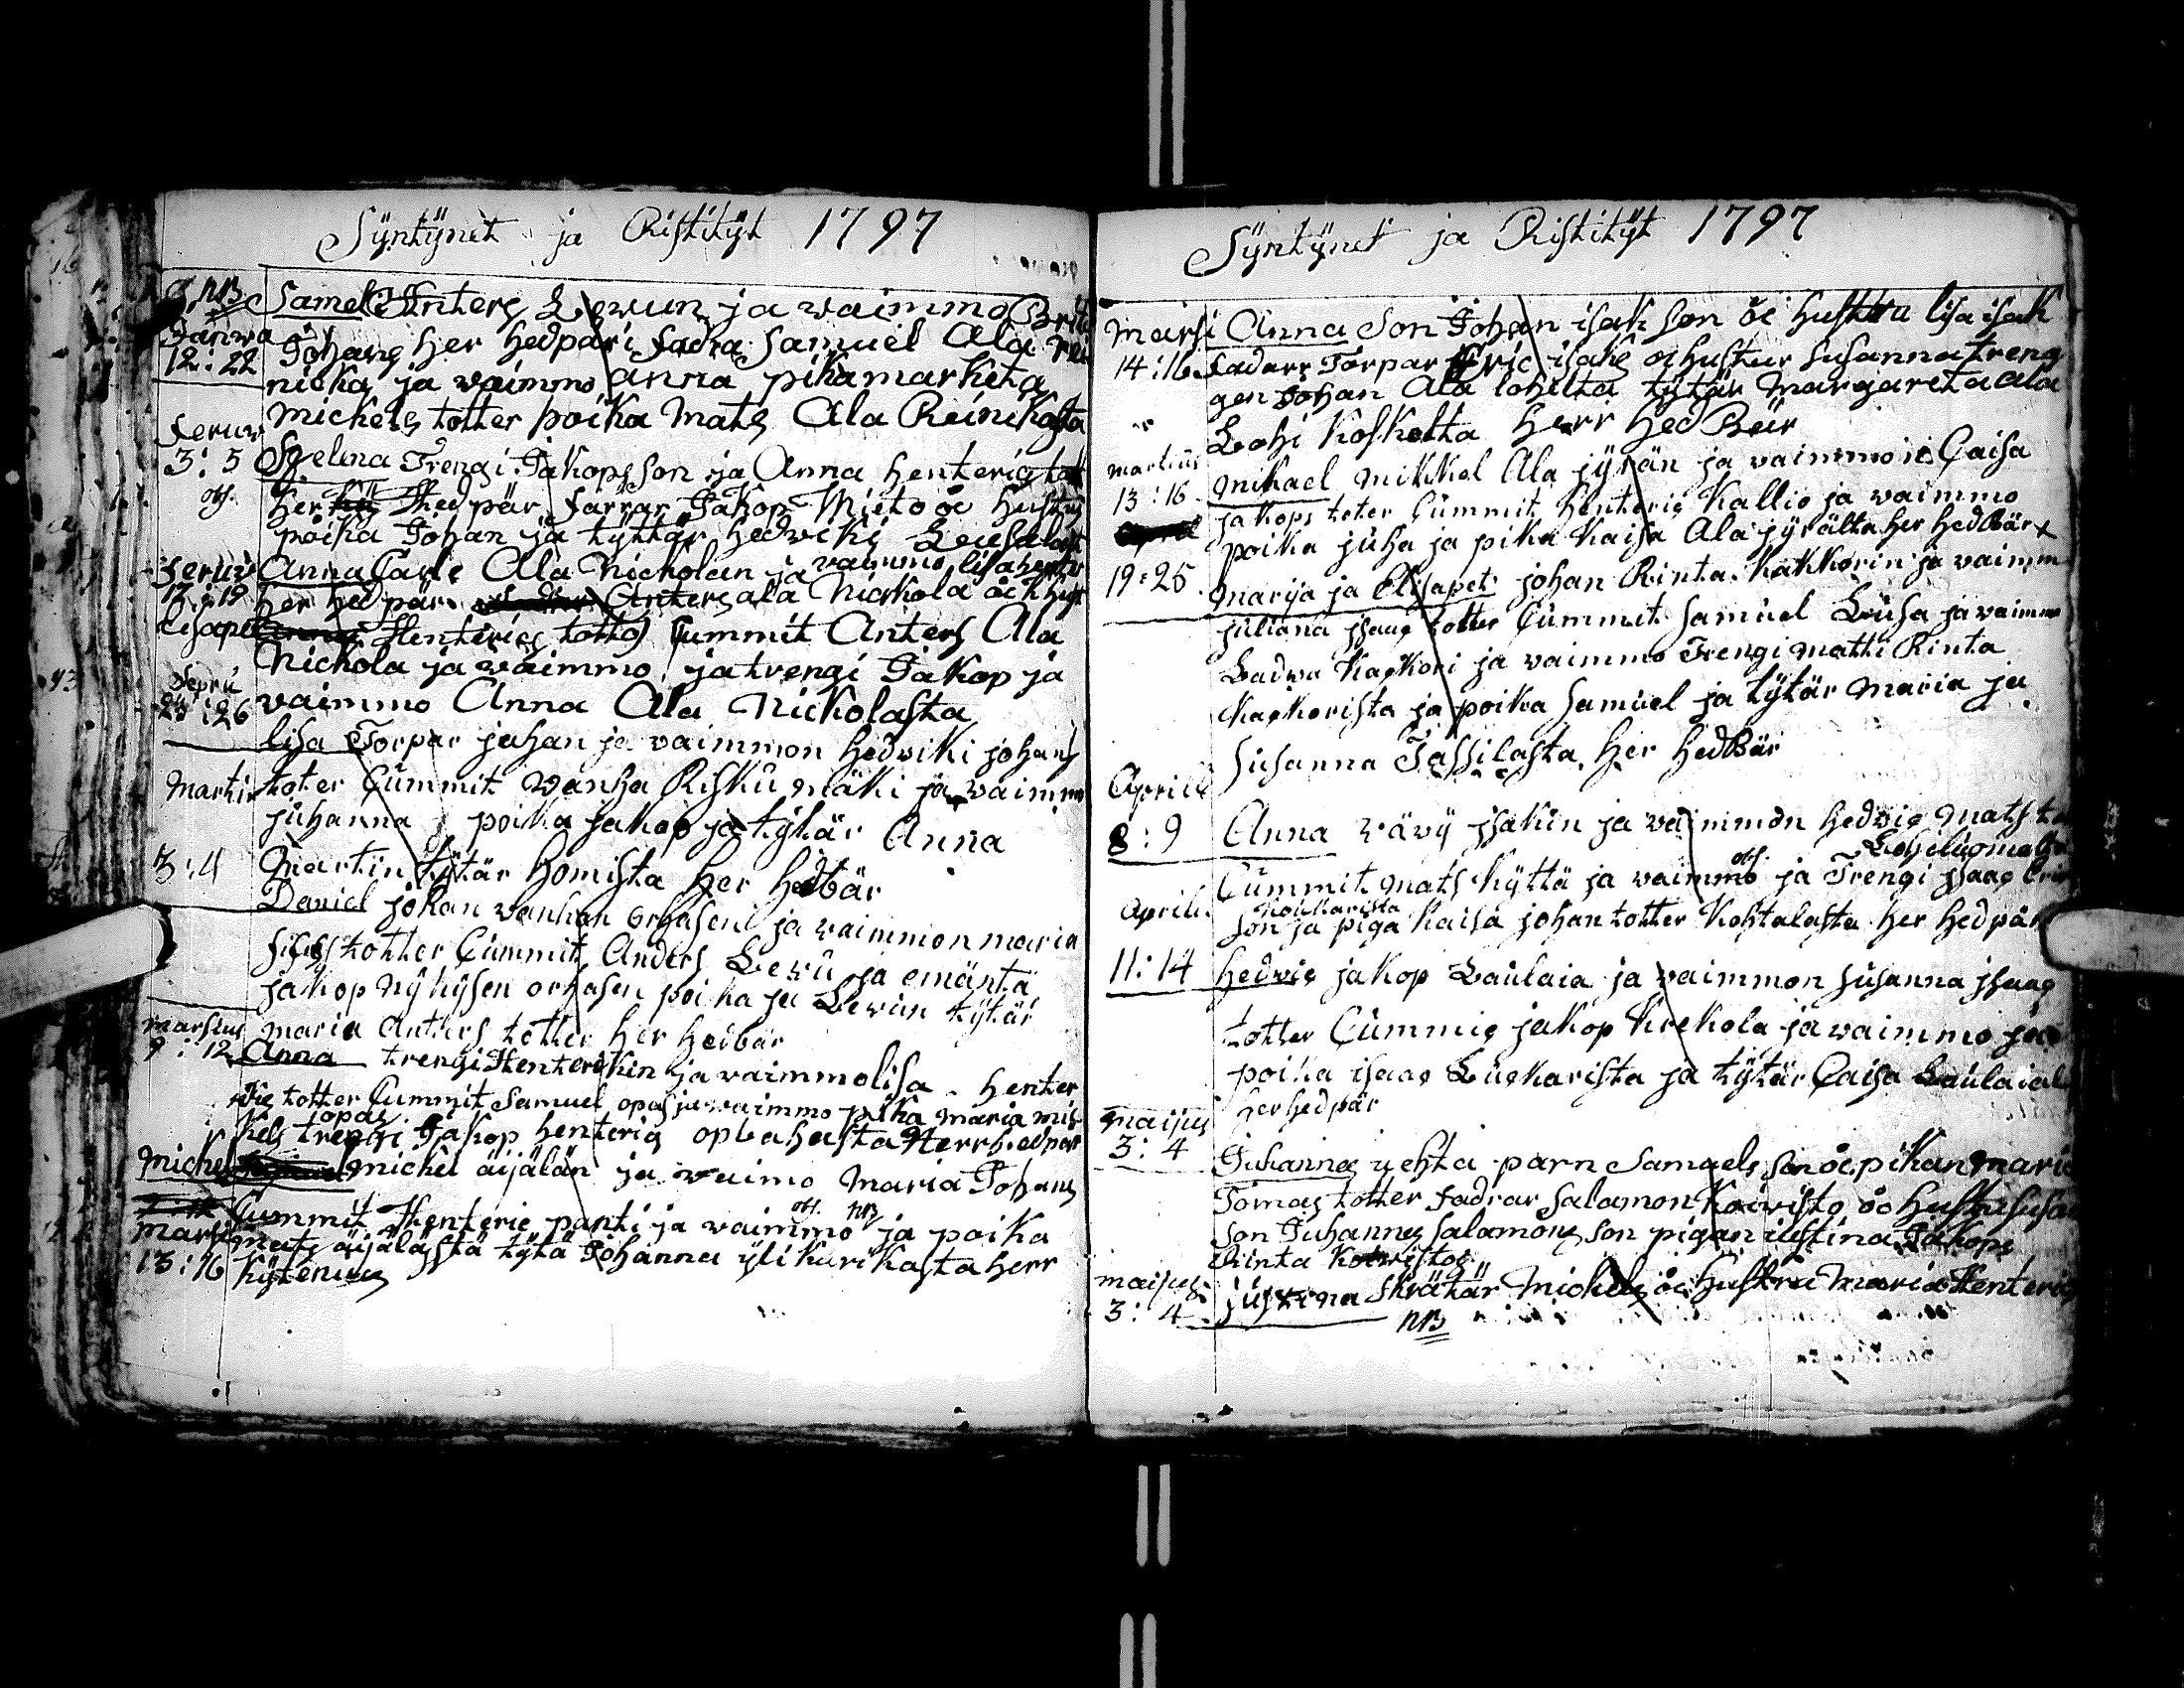 Syntynet ja Ristityt 1797
NB Samel Anters Lewun ja waimmo Brita
Janwa Johans her hedpari fadra Samuel Ala Rei
12:22 nicka ja vaimmo anna pika marketa
Michels totter poika Mats Ala Reinikasta
Feruw
3:5 Selma Trengi Jakops son ja Anna Henterig tot
obf. her hedpär färrar Jakop Mieto oc hustru
poika Johan ja tyttär hedwiki Leusalast
Feruw Anna Carls Ala Nickolan ja vaimmo lisa henter
17:19 her hedpär Anters ala Nickola oc hust
Lisapet Henterics totto Cummit Anters Ala
Nickola ja waimmo ja trengi Jakop ja
Fepru
25:26 waimmo Anna Ala Nickolasta
lisa Torpar juhan ja vaimmon hedviki johans
Marti toter Cummit wanha Risku mäki ja vaimmo
juhanna poika jakop ja tytär Anna
3:4 Martin tytär homista her hedbär
Daniel johan vanhan orhasen ja vaimmon maria
totter Cummit Anders Lewu ja emäntä
jakop nykysen orhasen poika ja Lewun tytär
marsius maria Anters totter her hedbär
9:12 Anna trengi Henterikin ja vaimmo lisa henter
ric totter Cummit Samuel opas ja waimmo pika maria mi
kels opas trengi Jakop henterig opbahasta Herr hedpar
Michel michel äijälän ja waimo Maria Johans
Cummit Henteric panti ja vaimmo obf. NB ja poika
marsi mats äijälästä tytä Johanna ylikurikasta herr
13:16 Kytenius

Syntynet ja Ristityt 1797
marsi Anna Son Johan isak son oc hustru lisa isak
14:16 fadarr Torpar Eric isaks oc hustur susanna treng
gen Johan Ala lohelta tytär Margareta ala
Lohi Koskelta herr hed Bär
martius mikael mikkel Ala jyrän ja vaimmo Caisa
13:16 jakops toter Cummit henteric Kallio ja vaimmo
poika juha ja pika Kaisa Ala jyrälta her hedbär
19:25 marija ja Elisapet johan Rinta Kakkorin ja vaimm
juliana jsaac totter Cummit Samuel Leusa ja vaimmo
Ladwa Kackori ja vaimmo Trengi matti Rinta
Kackorista ja poika Samuel ja tytär Maria ja
Susanna Tassilasta her hedbär
Aprili
8:9 Anna vävy jsakin ja vaimmon hedvic Mats
Cummit mats Kyttä ja vaimmo obf. ja Trengi jsaac
Aprili son ja piga Kaisa johan totter Kohtalasta her hedpär
11:14 hedvic jakop Laulaia ja vaimmon susanna jsaac
totter Cummic jakop Krekola ja vaimmo ja
poika isaac Luckarista ja tytär Caisa Laulaial
maijus her hedpär
3:4 Juhannes yehta parn Samuels son oc pikan maria
Tomas totter fadrar Salamon Koivisto oc hustru susa
son Juhannes salamons son pigan iustina Jakops
Rinta Koivistos
maijus justina Skrätär Michels oc hustru Maria Henteric
3:4 NB